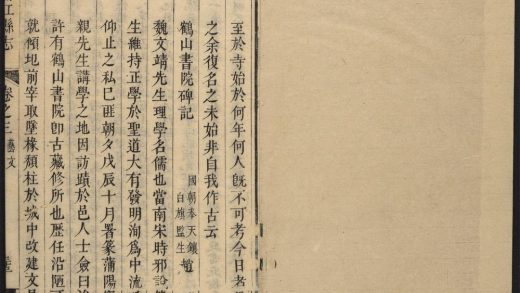 至於寺始於何年何人旣不可考今日者
之余復名之未始非自我作古云
鶴山書院碑記
國朝奉天鑲
白旗監生
魏文靖先生理學名儒也當南宋時邪說
生維持正學於聖道大有發明洵爲中流
仰止之私已匪朝夕戊辰十月署篆蒲陽
親先生講學之地因訪蹟於邑人士僉曰
許有鶴山書院卽古藏修所也歷任沿陋
就傾圮前宰取壓椽頹柱於城中改建文
江縣志
卷之三
藝文